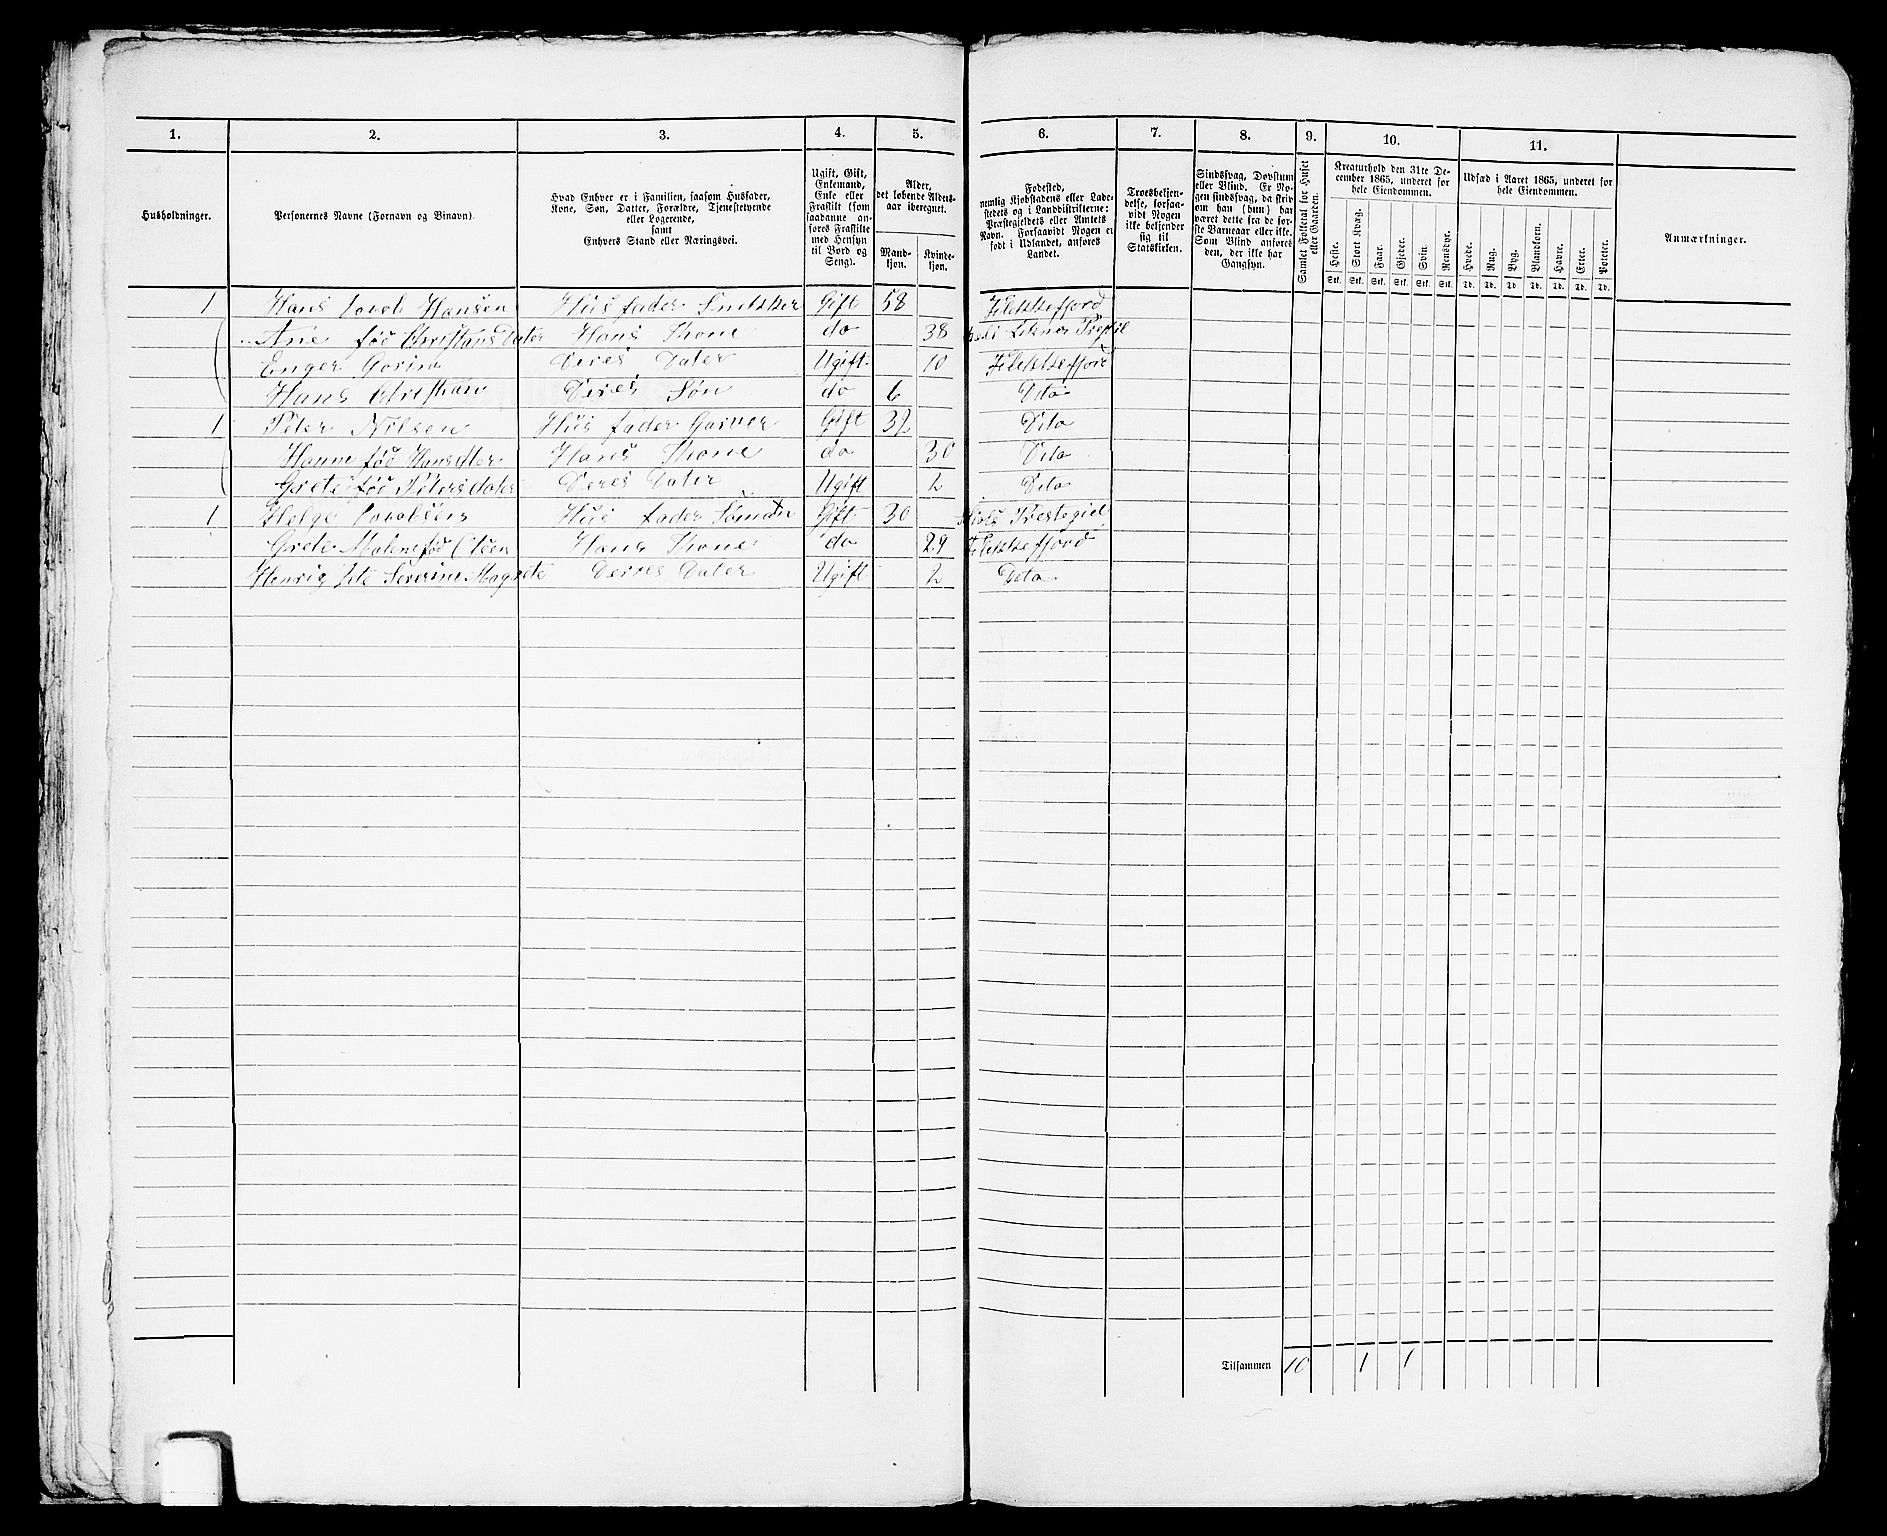 1. 2. 3. 4. 5. 6. 7. 8. 9. 10. 11.
Husholdninger.
Personernes Navne (Fornavn og Binavn).
Hvad Enhver er i Familien, saasom Husfader,
Kone, Søn, Datter, Forældre, Tjenestetyende
eller Logerende,
samt
Enhvers Stand eller Næringsvei.
Ugift, Gift,
Enkemand,
Enke eller
Fraskilt (som
saadanne an-
føres Fraskilte
med Hensyn
til Bord og
Seng).
Alder,
det løbende Alders-
aar iberegnet.
Mand-
kjøn.
Kvinde-
kjøn.
Fødested,
nemlig Kjøbstadens eller Lade-
stedets og i Landdistrikterne:
Præstegjeldets eller Amtets
Navn. Forsaavidt Nogen er
født i Udlandet, anføres
Landet.
Troesbekjen-
delse, forsaa-
vidt Nogen
ikke bekjender
sig til
Statskirken.
Sindssvag, Døvstum
eller Blind. Er No-
gen sindssvag, da skriv
om han (hun) har
været dette fra de før-
ste Barneaar eller ikke.
Som Blind anføres
den, der ikke har
Gangsyn.
Samlet Folketal for Huset
eller Gaarden.
Kreaturhold den 31te De-
cember 1865, underet for
hele Eiendommen.
Heste. Stort Kvæg. Faar. Gjeder. Svin. Rensdyr.
Stk. Stk. Stk. Stk. Stk. Stk.
Udsæd i Aaret 1865, underet for
hele Eiendommen.
Hvede. Rug. Byg. Blandkorn. Havre. Erter. Poteter.
Td. Td. Td. Td. Td. Td. Td.
Anmærkninger.
1 Hans Hansen Husfader Snedker Gift 58 Flekkefjord
Ane fød Christans Dater Hans Kone do 38
Enger Gorine Deres Dater Ugift 10 Flekkefjord
Hans Christian Deres Søn do 6 Dito
1 Peter Nilsen Husfader Garver Gift 32 Dito
Hanne fød Hans Hans Kone do 30 Dito
Grete fød Petersdater Deres Dater Ugift 2 Dito
1 Helge Husfader Söman Gift 30 Prestegiel
Grete Malene fød Olsen Hans Kone do 29 Flekkefjord
Severine Magrete Deres Dater Ugift 2 Dito
Tilsammen 10 1 1